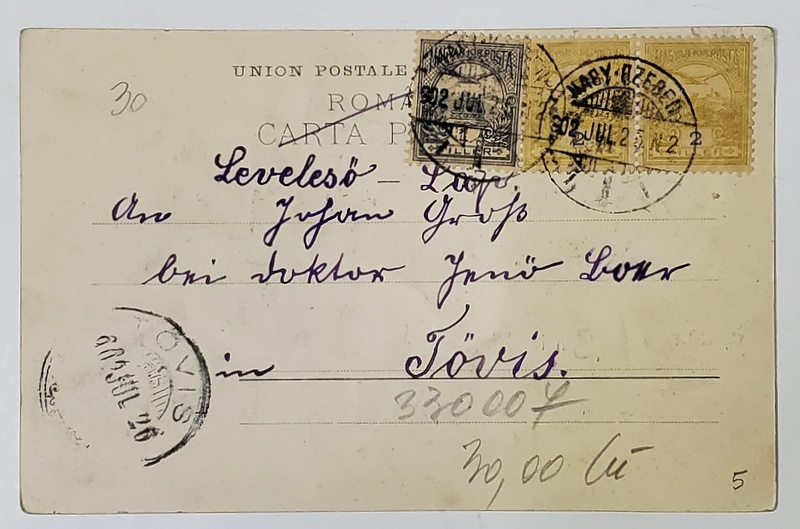 UNION POSTALE
ROMA
CARTA P
MAGYAR KIR. POSTA
1
FILLÉR
2
2
FILLÉR
NAGY-SZEBEN
902 JUL 2
902 JUL 2 N2
30
Levelesö – Lap.
An Johan Groß
bei doktor Jenö Boer
in Tövis.
TÖVIS
902 JUL 26
330007
30,00
5